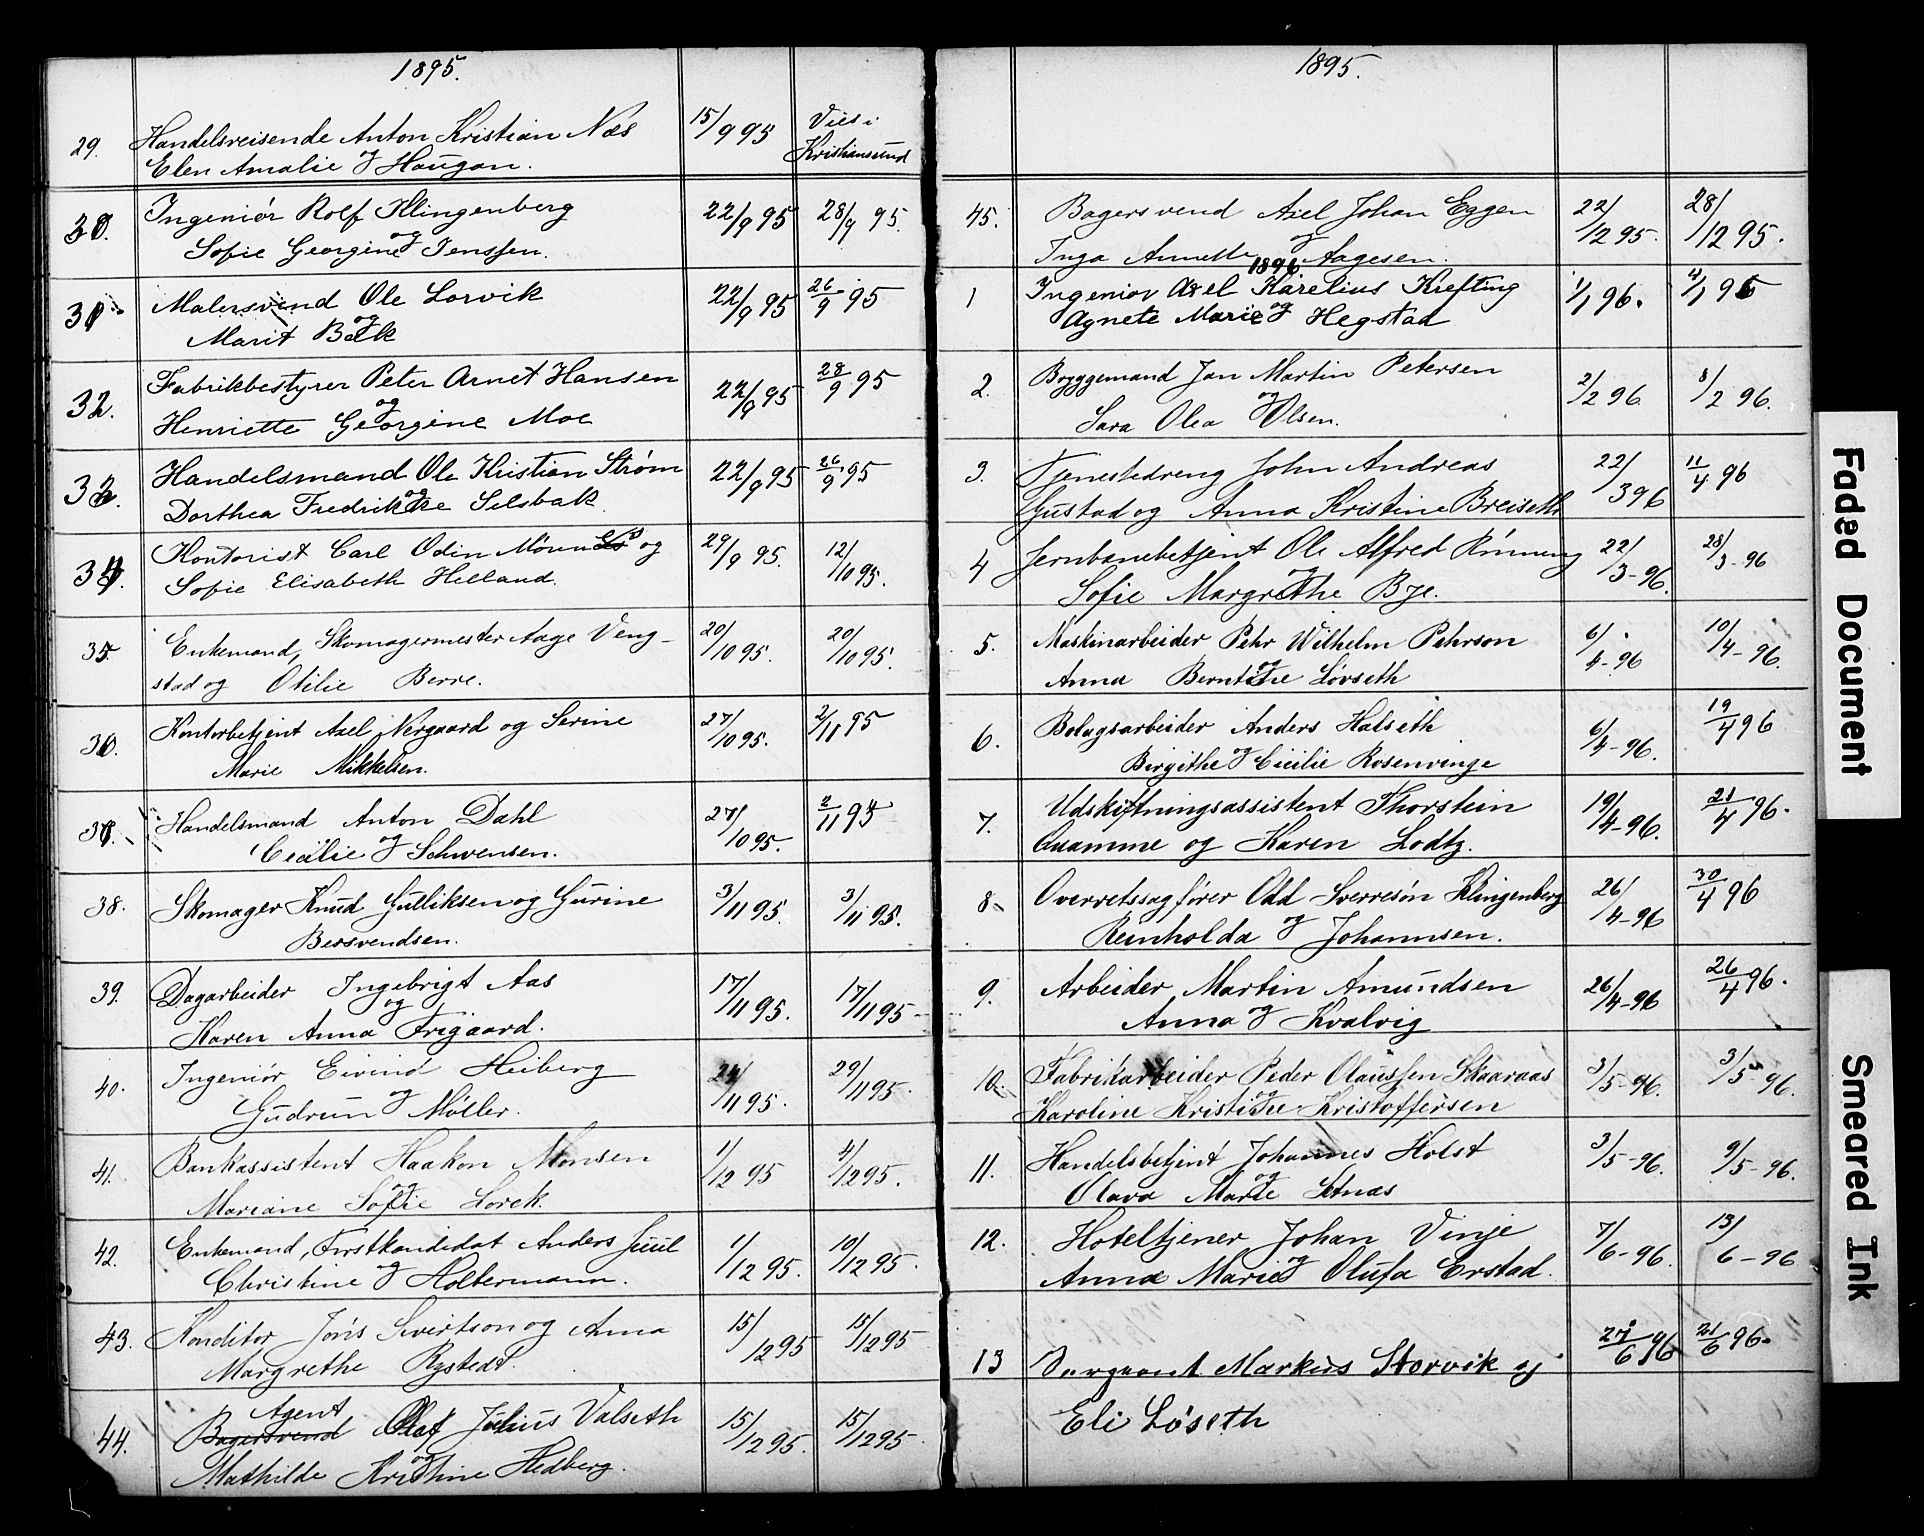 1895.
29. Handelsreisende Anton Kristian Næs 15/9 95 Viet i
og
Elen Amalie Haugan. Kristiansund
30. Ingeniör Rolf Klingenberg 22/9 95 28/9 95.
og
Sofie Georgine Jenssen.
31 Malersvend Ole Lorvik 22/9 95 26/9 95
og
Marit Bæk
32. Fabrikbestyrer Peter Arnet Hansen 22/9 95 28/9 95
og
Henriette Georgine Moe
33. Handelsmand Ole Kristian Strøm 22/9 95 26/9 95
og
Dorthea Fredrikke Selsbak
34. Kontorist Carl Odin og 29/9 95. 12/10 95.
Sofie Elisabeth Helland.
35. Enkemand, Skomagermester Aage Veng- 20/10 95. 20/10 95.
stad og Otilie Berre.
36. Kontorbetjent Axel Nergaard og Serine 27/10 95. 2/11 95
Marie Mikkelsen.
37. Handelsmand Anton Dahl 27/10 95. 2/11 95
og
Cecilie Schwensen.
38. Skomager Knud Gulliksen og Gurine 3/11 95. 3/11 95.
Bersvendsen.
39. Dagarbeider Ingebrigt Aas 17/11 95. 17/11 95-
og
Karen Anna Frigaard.
40. Ingeniör Eivind Heiberg 24/11 95. 29/11 95.
og
Gudrun Møller.
41. Bankassistent Haakon Monsen 1/12 95 4/12 95.
og
Mariane Sofie Lorck.
42. Enkemand, Forstkandidat Anders Juul 1/12 95. 10/12 95.
og
Christine Holtermann.
43. Konditor Jons Sivertson og Anna 15/12 95 15/12 95
Margrethe Rystedt.
Agent
44. Bagersvend Olaf Julius Valseth 15/12 95. 15/12 95
og
Mathilde Kristine Hedberg.
1895.
45. Bagersvend Axel Johan Eggen 22/12 95. 28/12 95.
og
Inga Annette Aagesen.
1896
1 Ingeniör Axel Karelius Krefting 1/1 96. 4/1 96
og
Agnete Marie Hegstad
2. Bryggemand Jan Martin Petersen 2/2 96 8/2 96.
og
Sara Olea Olsen.
3. Tjenestedreng John Andreas 22/3 96 11/4 96
Gustad og Anna Kristine Breiseth
4 Jernbanebetjent Ole Alfred Rønning 22/3-96. 28/3-96
og
Sofie Margrethe Bye.
5. Maskinarbeider Pehr Wilhelm Pehrson 6/4-96 10/4-96.
og
Anna Berntine Løvseth
6. Bolagsarbeider Anders Halseth 6/4-96. 19/4 96
og
Birgithe Cicilie Rosenvinge
7. Udskiftningsassistent Thorstein 19/4-96. 21/4 96.
Quamme og Karen Lodtz.
8. Overretssagfører Odd Sverresøn Klingenberg 26/4-96 30/4 96
og
Reinholda Johannsen.
9. Arbeider Martin Amundsen 26/4-96 26/4 96.
og
Anna Kvalvig
10. Fabrikarbeider Peder Olaussen Skaaraas 3/5-96. 3/5-96.
og
Karoline Kristine Kristoffersen
11. Handelsbetjent Johannes Holst 3/5-96. 9/5-96.
og
Olava Marie Setnæs
12. Hoteltjener Johan Vinje 7/6-96. 13/6-96
og
Anna Marie Olufa Erstad.
13 Markus Storvik og 21/6 96.
Eli Løseth
Faded Document
Smeared Ink